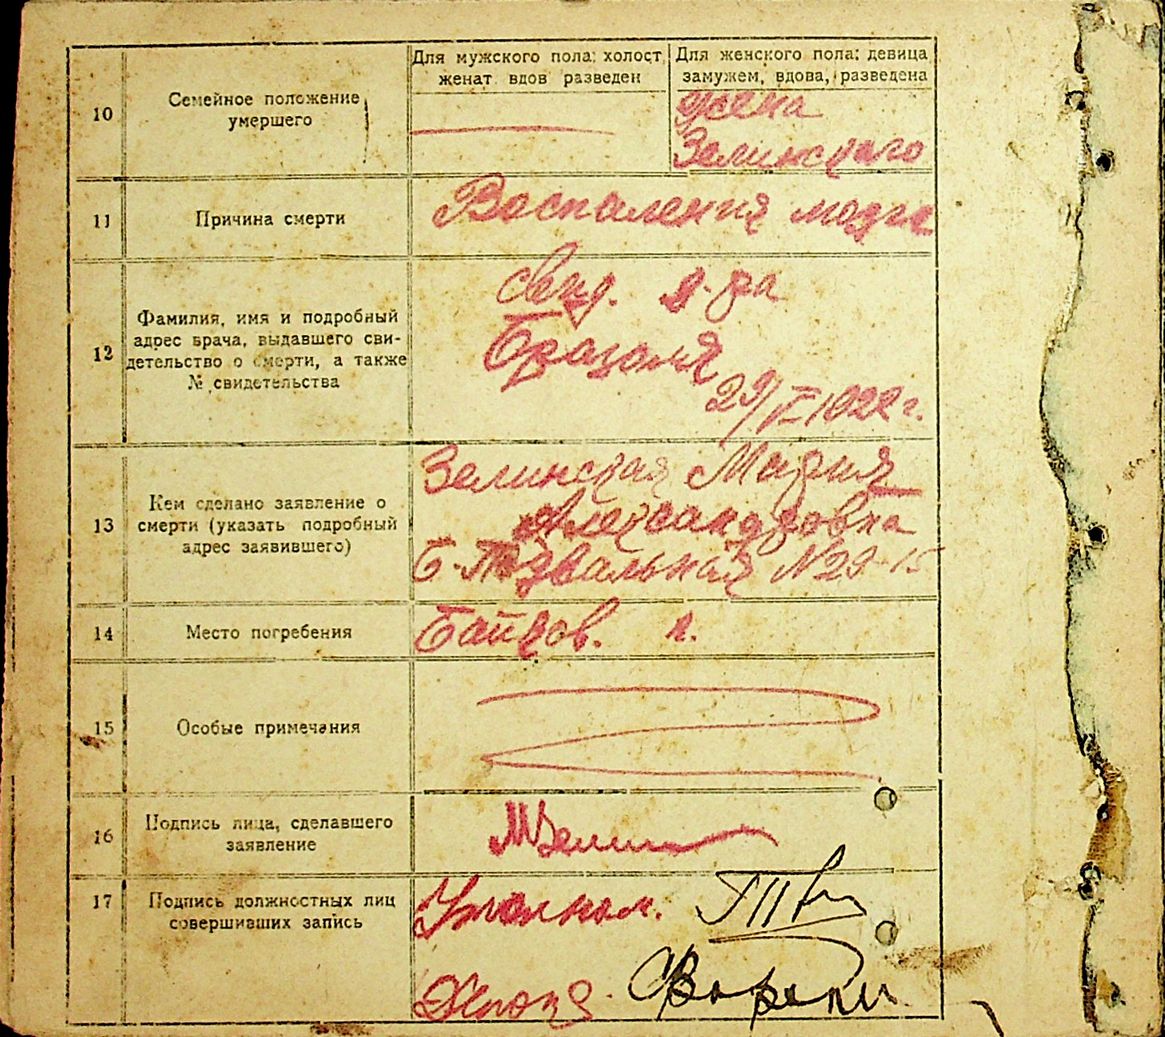 10
Семейное положение
умершего
Для мужского пола: холост,
женат вдов разведен
Для женского пола: девица
замужем, вдова, разведена
жена
Зелинскаго
11
Причина смерти
Воспаления мозга
12
Фамилия, имя и подробный
адрес врача, выдавшего сви-
детельство о смерти, а также
№ свидетельства
свид. д-ра
29/ 1922 г.
13
Кем сделано заявление о
смерти (указать подробный
адрес заявившего)
Зелинская Мария
Александровна
Б.-Подвальная №29-15
14
Место погребения
Байков. к.
15
Особые примечания
16
Подпись лица, сделавшего
заявление
МЗелин
17
Подпись должностных лиц
совершивших запись
Уполном.